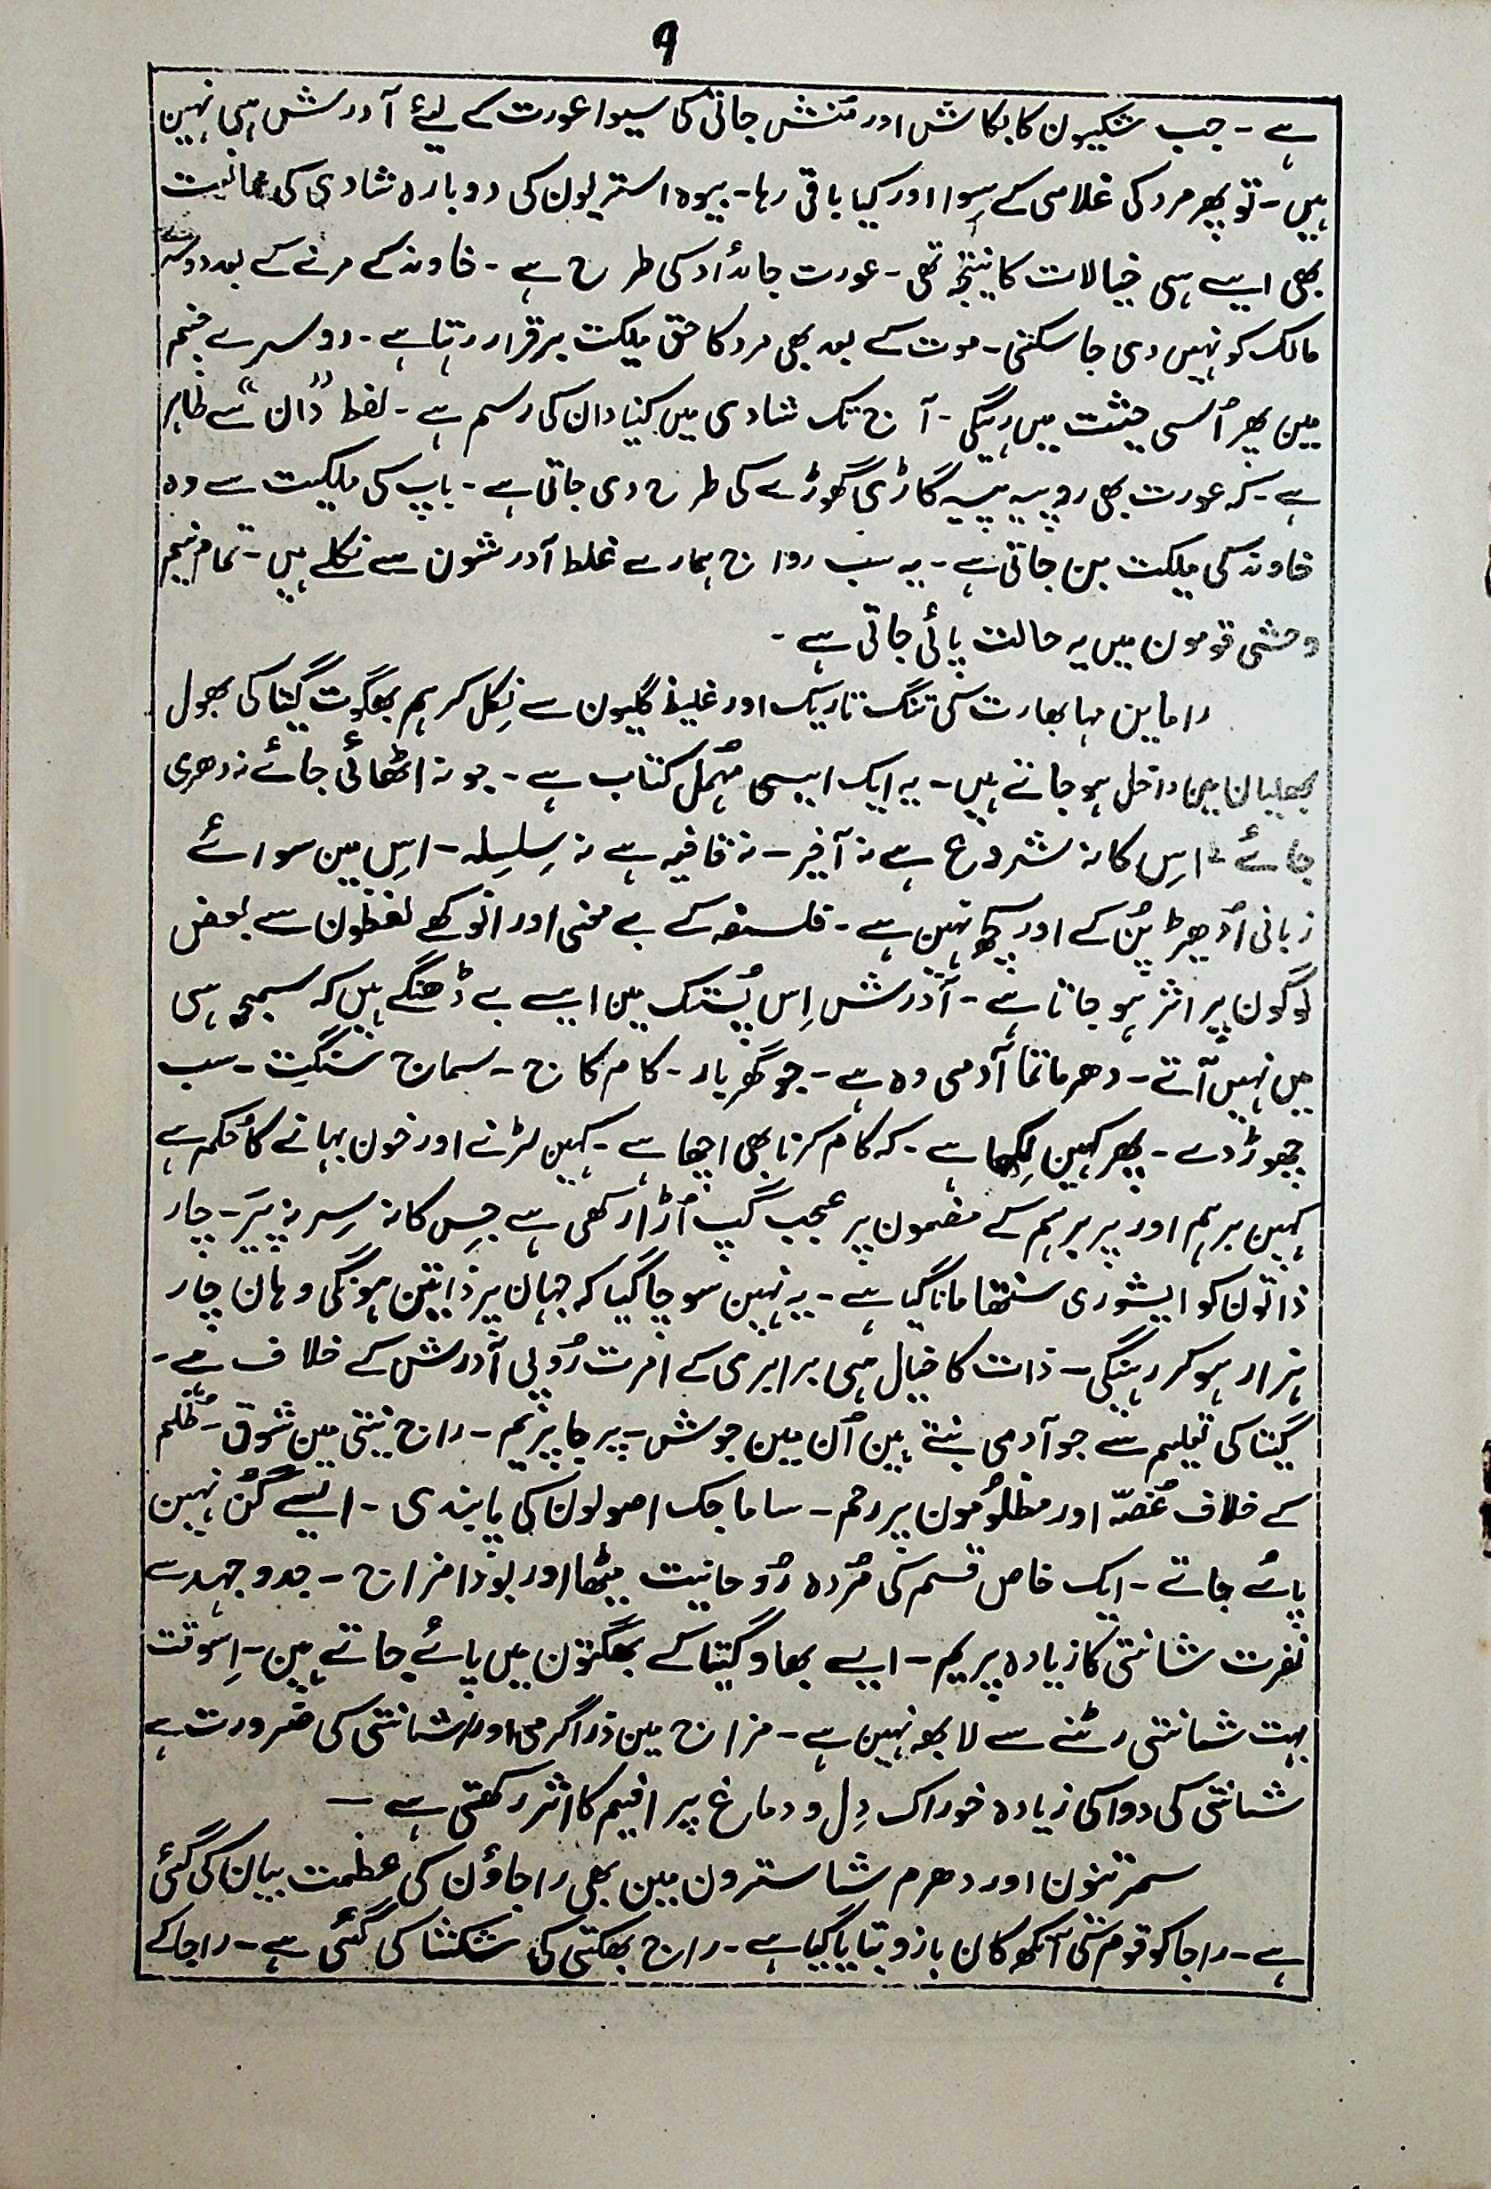 ۹
ہے ۔ جب شکتیون کا بکاش اور منش جاتی کی سیوا عورت کے لیئے آدرش ہی نہین
ہیں ۔ تو پھر مرد کی غلامی کے سِوا اور کیا باقی رہا ۔ بیوہ استریون کی دوبارہ شادی کی ممانیت
بھی ایسے ہی خیالات کا نتیجہ تھی ۔ عورت جائداد کی طرح ہے ۔ خاوند کے مرنے کے بعد دوسرے
مالک کو نہیں دی جا سکتی ۔ موت کے بعد بھی مرد کا حق ملکت برقرار رہتا ہے ۔ دوسرے جنم
مین پھر اُسی حیثت میں رہیگی ۔ آج تک شادی میں کنیا دان کی رسم ہے ۔ لفظ ”دان“ سے ظاہر
ہے ۔ کہ عورت بھی روپیہ پیسہ گاڑی گھوڑے کی طرح دی جاتی ہے ۔ باپ کی ملکیت سے وہ
خاوند کی ملکت بن جاتی ہے ۔ یہ سب رواج ہمارے غلط آدرشون سے نکلے ہیں ۔ تمام نیم
وحشی قومون میں یہ حالت پائی جاتی ہے ۔
راماین مہابھارت کی تنگ تاریک اور غلیظ گلیون سے نِکل کر ہم بھگوت گیتا کی بھول
بھلیان مین داخل ہو جاتے ہیں ۔ یہ ایک ایسی مُہمل کتاب ہے ۔ جو نہ اٹھائی جائے نہ دھری
جائے ۔ اسِ کا نہ شروع ہے نہ آخیر ۔ نہ قافیہ ہے نہ سِلسِلہ ۔ اسِ مین سوائے
زبانی اُدھیڑ بُن کے اور کچھ نہین ہے ۔ فلسفہ کے بے معنی اور انوکھے لفظون سے بعض
لوگون پر اثر ہو جاتا ہے ۔ آدرش اِس پُستک مین ایسے بے ڈھنگے ہیں کہ سمجھ ہی
میں نہیں آتے ۔ دھرماتما آدمی وہ ہے ۔ جو گھر بار ۔ کام کاج ۔ سماج سنگت ۔ سب
چھوڑ دے ۔ پھر کہین لِکھا ہے ۔ کہ کام کرنا بھی اچھا ہے ۔ کہین لڑنے اور خون بہانے کا حُکم ہے
کہین برہم اور پر برہم کے مضمون پر عجب گپ اُڑا رکھی ہے جِس کا نہ سِر نہ پَیر ۔ چار
ذاتون کو ایشوری سنتھا مانا گیا ہے ۔ یہ نہین سوچا گیا کہ جہان پر ذاتین ہونگی وہان چار
ہزار ہو کر رہینگی ۔ ذات کا خیال ہی برابری کے امرت رُوپی آدرش کے خلاف ہے ۔
گیتا کی تعلیم سے جو آدمی بنتے ہین اُن مین جوش ۔ پرجا پریم ۔ راج نیتی مین شوق ۔ ظُلم
کے خلاف غُصّہ اور مظلُومون پر رحم ۔ ساماجک اصولون کی پابندی ۔ ایسے گُن نہین
پائے جاتے ۔ ایک خاص قسم کی مُردہ رُوحانیت میٹھا اور بودا مزاج ۔ جدوجہد سے
نفرت شانتی کا زیادہ پریم ۔ ایسے بھاو گیتا کے بھگتون میں پائے جاتے ہین ۔ اِسوقت
بہت شانتی رٹنے سے لابھ نہین ہے ۔ مزاج مین ذرا گرمی اور اشانتی کی ضرورت ہے
شانتی کی دوا کی زیادہ خوراک دِل و دماغ پر افیم کا اثر رکھتی ہے —
سمرتیون اور دھرم شاسترون مین بھی راجاؤن کی عظمت بیان کی گئی
ہے ۔ راجا کو قوم کی آنکھ کان بازو بتایا گیا ہے ۔ راج بھکتی کی شکشا کی گئی ہے ۔ راجا کے